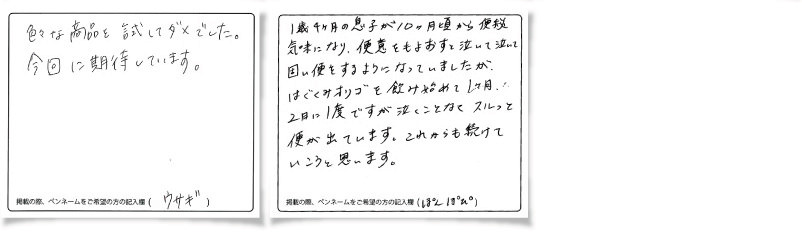 色々な商品を試してダメでした。
今回に期待しています。
掲載の際、ペンネームをご希望の方の記入欄(ウサギ)
1歳4ヶ月の息子が10ヶ月頃から便秘
気味になり、便意をもよおすと泣いて泣いて
固い便をするようになっていましたが、
はぐくみオリゴを飲み始めて1ヶ月..
2日に1度ですが泣くことなく スルっと
便が出ています。これからも続けて
いこうと思います。
掲載の際、ペンネームをご希望の方の記入欄(ぽんぽこぴ)